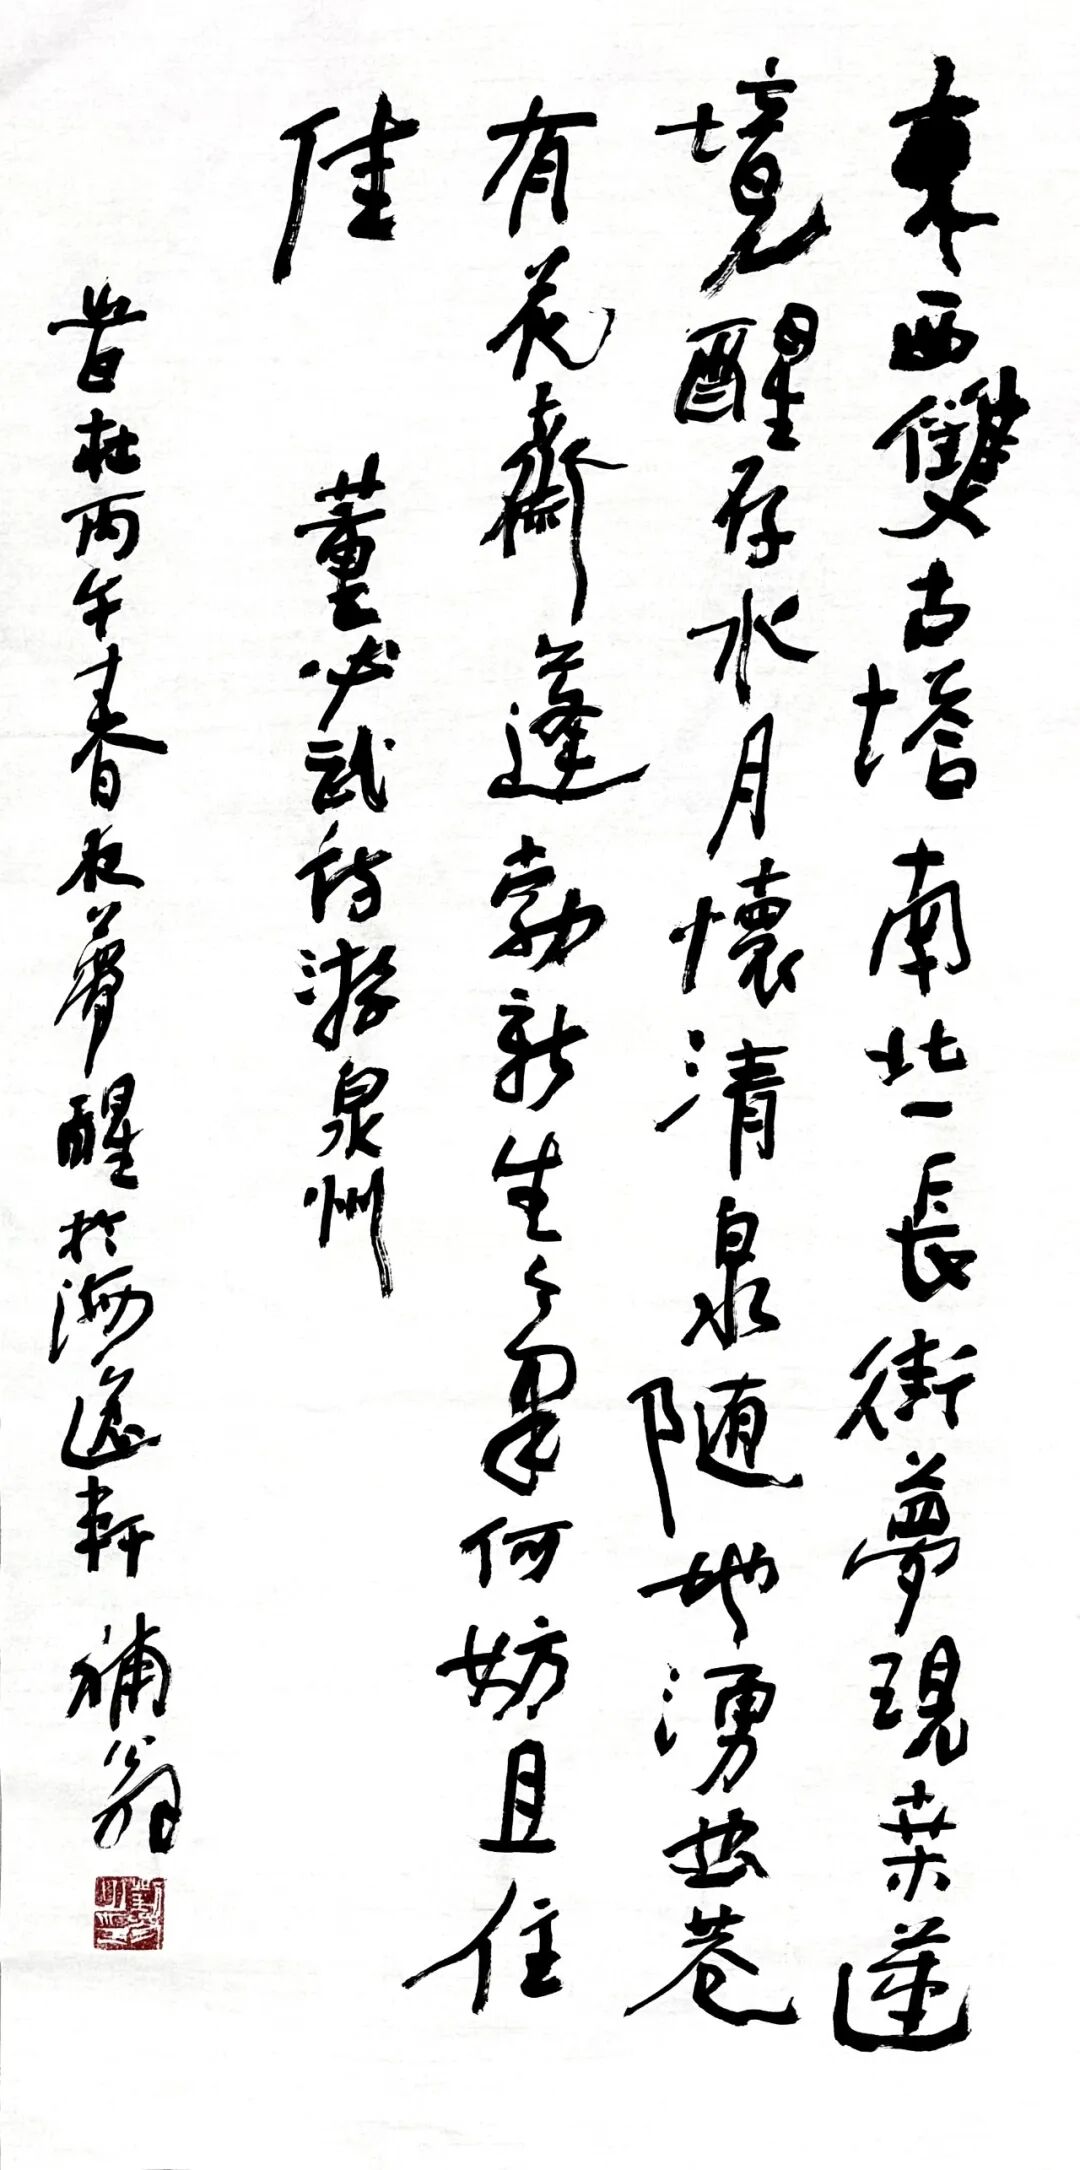 東西雙古塔南北一長街夢現桑蓮
境醒存水月懷清泉随地湧曲巷
有花齋蓬勃新生々象何妨且住
佳
董必武詩游泉州
昔在丙午春夜夢醒於海逸軒補翁